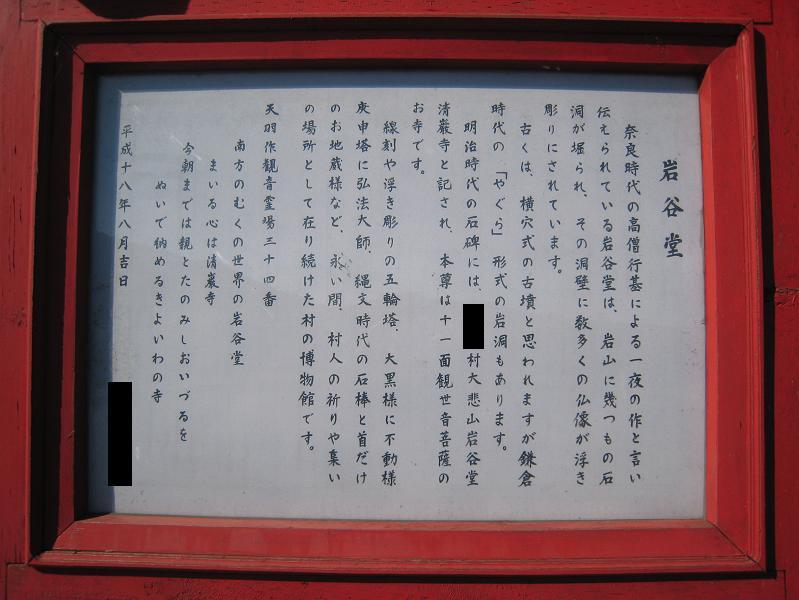 岩谷堂
奈良時代の高僧行基による一夜の作と言い
伝えられている岩谷堂は、岩山に幾つもの石
洞が堀られ、その洞壁に数多くの仏像が浮き
彫りにされています。
古くは、横穴式の古墳と思われますが鎌倉
時代の「やぐら」形式の岩洞もあります。
明治時代の石碑には、村大悲山岩谷堂
清巌寺と記され、本尊は十一面観世音菩薩の
お寺です。
線刻や浮き彫りの五輪塔、大黒様に不動様
庚申塔に弘法大師、縄文時代の石棒と首だけ
のお地蔵様など、永い間、村人の祈りや集い
の場所として在り続けた村の博物館です。
天羽作観音霊場三十四番
南方のむくの世界の岩谷堂
まいる心は清巌寺
今朝までは親とたのみしおいづるを
ぬいで納めるきよいわの寺
平成十八年八月吉日